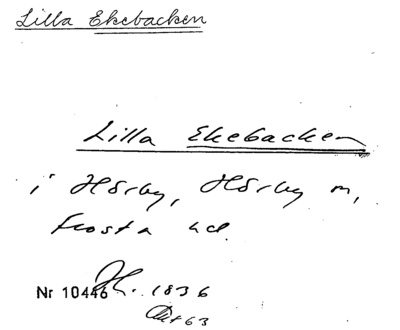 Lilla Ekebacken
Lilla Ekebacken
i Hörby, Hörby m,
Frosta hd.
Nr 10446 1836
63